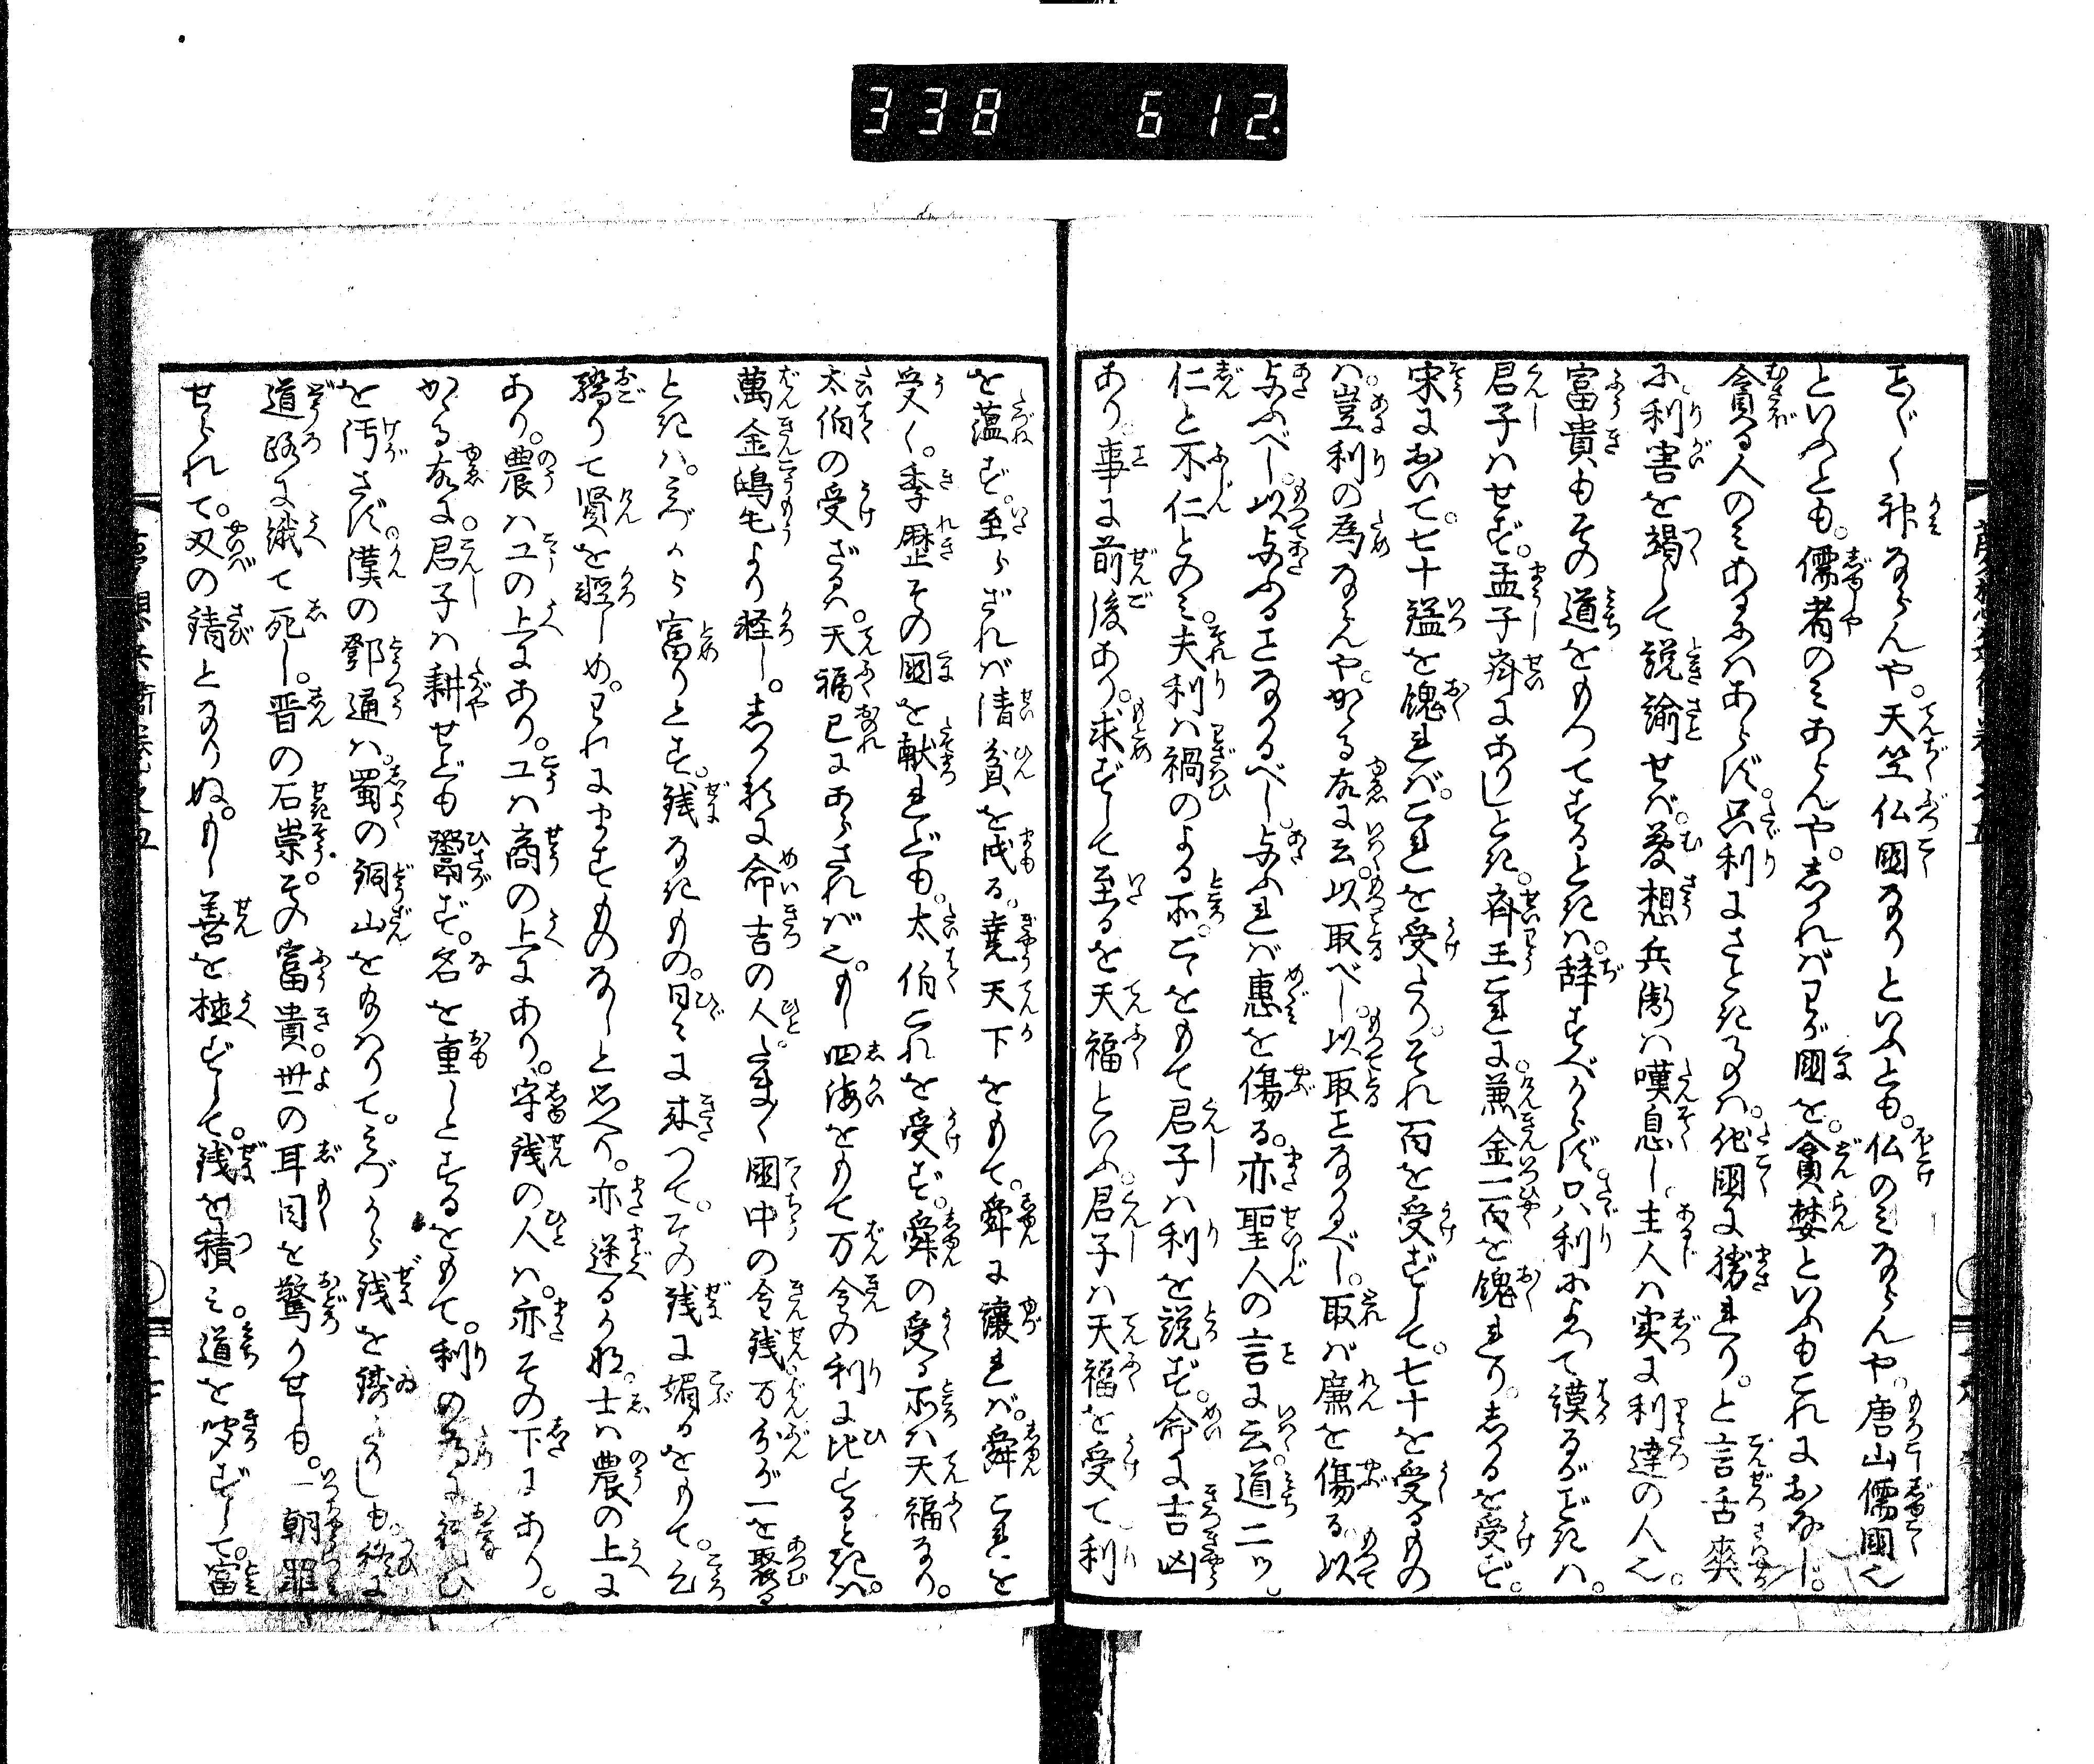 338 612.
こと〴〵く神ならんや。天竺仏國なりといふとも。仏のみならんや。唐山儒國也
といふとも。儒者のみあらんや。しかれバわが國を。貪婪といふもこれにおなじ。
貪る人のみあるにハあらず。只利にさとき事ハ。他國に勝れり。と言舌爽
に。利害を竭して説諭せバ。夢想兵衛ハ嘆息し。主人ハ実に利達の人也。
富貴もその道をもつてするときハ。辞すべからず。只利によつて謀るがごときハ。
君子ハせず。孟子齊にありしとき。齊王これに。兼金一百を餽れり。しかるを受ず。
宋において。七十鎰を餽れバ。これを受たり。それ百を受ずして。七十を受るもの
ハ。豈利の為ならんや。かゝる故に云。以取べし。以取ことなかるべし。取バ廉を傷る。以
与ふべし。以与ふることなかるべし。与ふれバ惠を傷る。亦聖人の言に云。道二ツ。
仁と不仁とのミ。夫利ハ禍のよる所。こゝをもて君子ハ利を説ず。命に吉凶
あり。事に前後あり。求ずして至るを天福といふ。君子ハ天福を受て利
を温ず。至らざれバ清貧を成る。堯天下をもて。舜に讓れバ。舜これを
受く。季歴その國を献れども。太伯これを受ず。舜の受る所ハ天福なり。
太伯の受ざるハ。天福已にあらざれバ也。もし四海をもて万金の利に比するときハ。
萬金鴻毛より軽し。しかるに命吉の人。たま〳〵國中の金錢万分が一を聚る
ときハ。みづから富りとす。錢なきもの。日々に来つて。その錢に媚るをもて。心
驕りて賢を輕しめ。われにますものなしと思へり。亦迷るかな。士ハ農の上に
あり。農ハ工の上にあり。工ハ商の上にあり。守錢の人ハ。亦その下にあり。
かゝる故に。君子ハ耕せども鬻ず。名を重しとするをもて。利の為に行ひ
を汚さず。漢の鄧通ハ。蜀の銅山をたまハりて。みづから錢を鋳たりしも。終に
道路に餓て死し。晋の石崇。その富貴。世の耳目を驚かせしも。一朝罪
せられて。刃の錆となりぬ。もし善を植ずして。錢を積ミ。道を守ずして。富